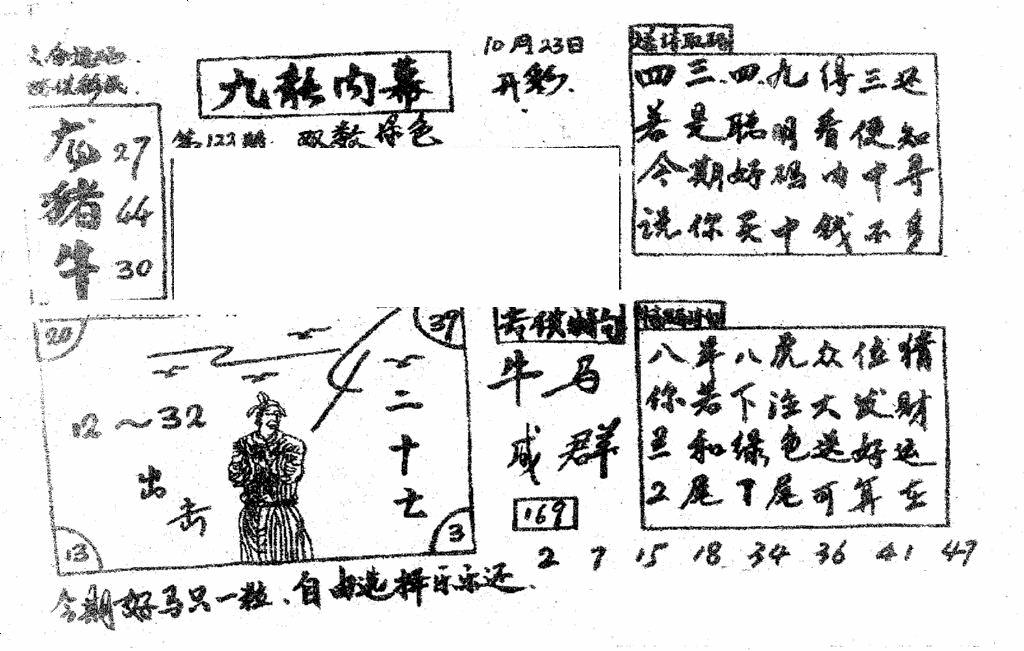 10月23日
开彩
九龙内幕
第122期 双数绿色
龙 27
猪 44
牛 30
四三四九得三还
若是聪明看便知
今期好码内中寻
说你买中钱不多
20
39
12～32
出击
二十七
13
3
牛马
成群
169
八年八虎众位猜
你若下注大发财
旦和绿色送好运
2尾7尾可算在
2 7 15 18 34 36 41 47
今期好马只一粒、自由选择乐乐还